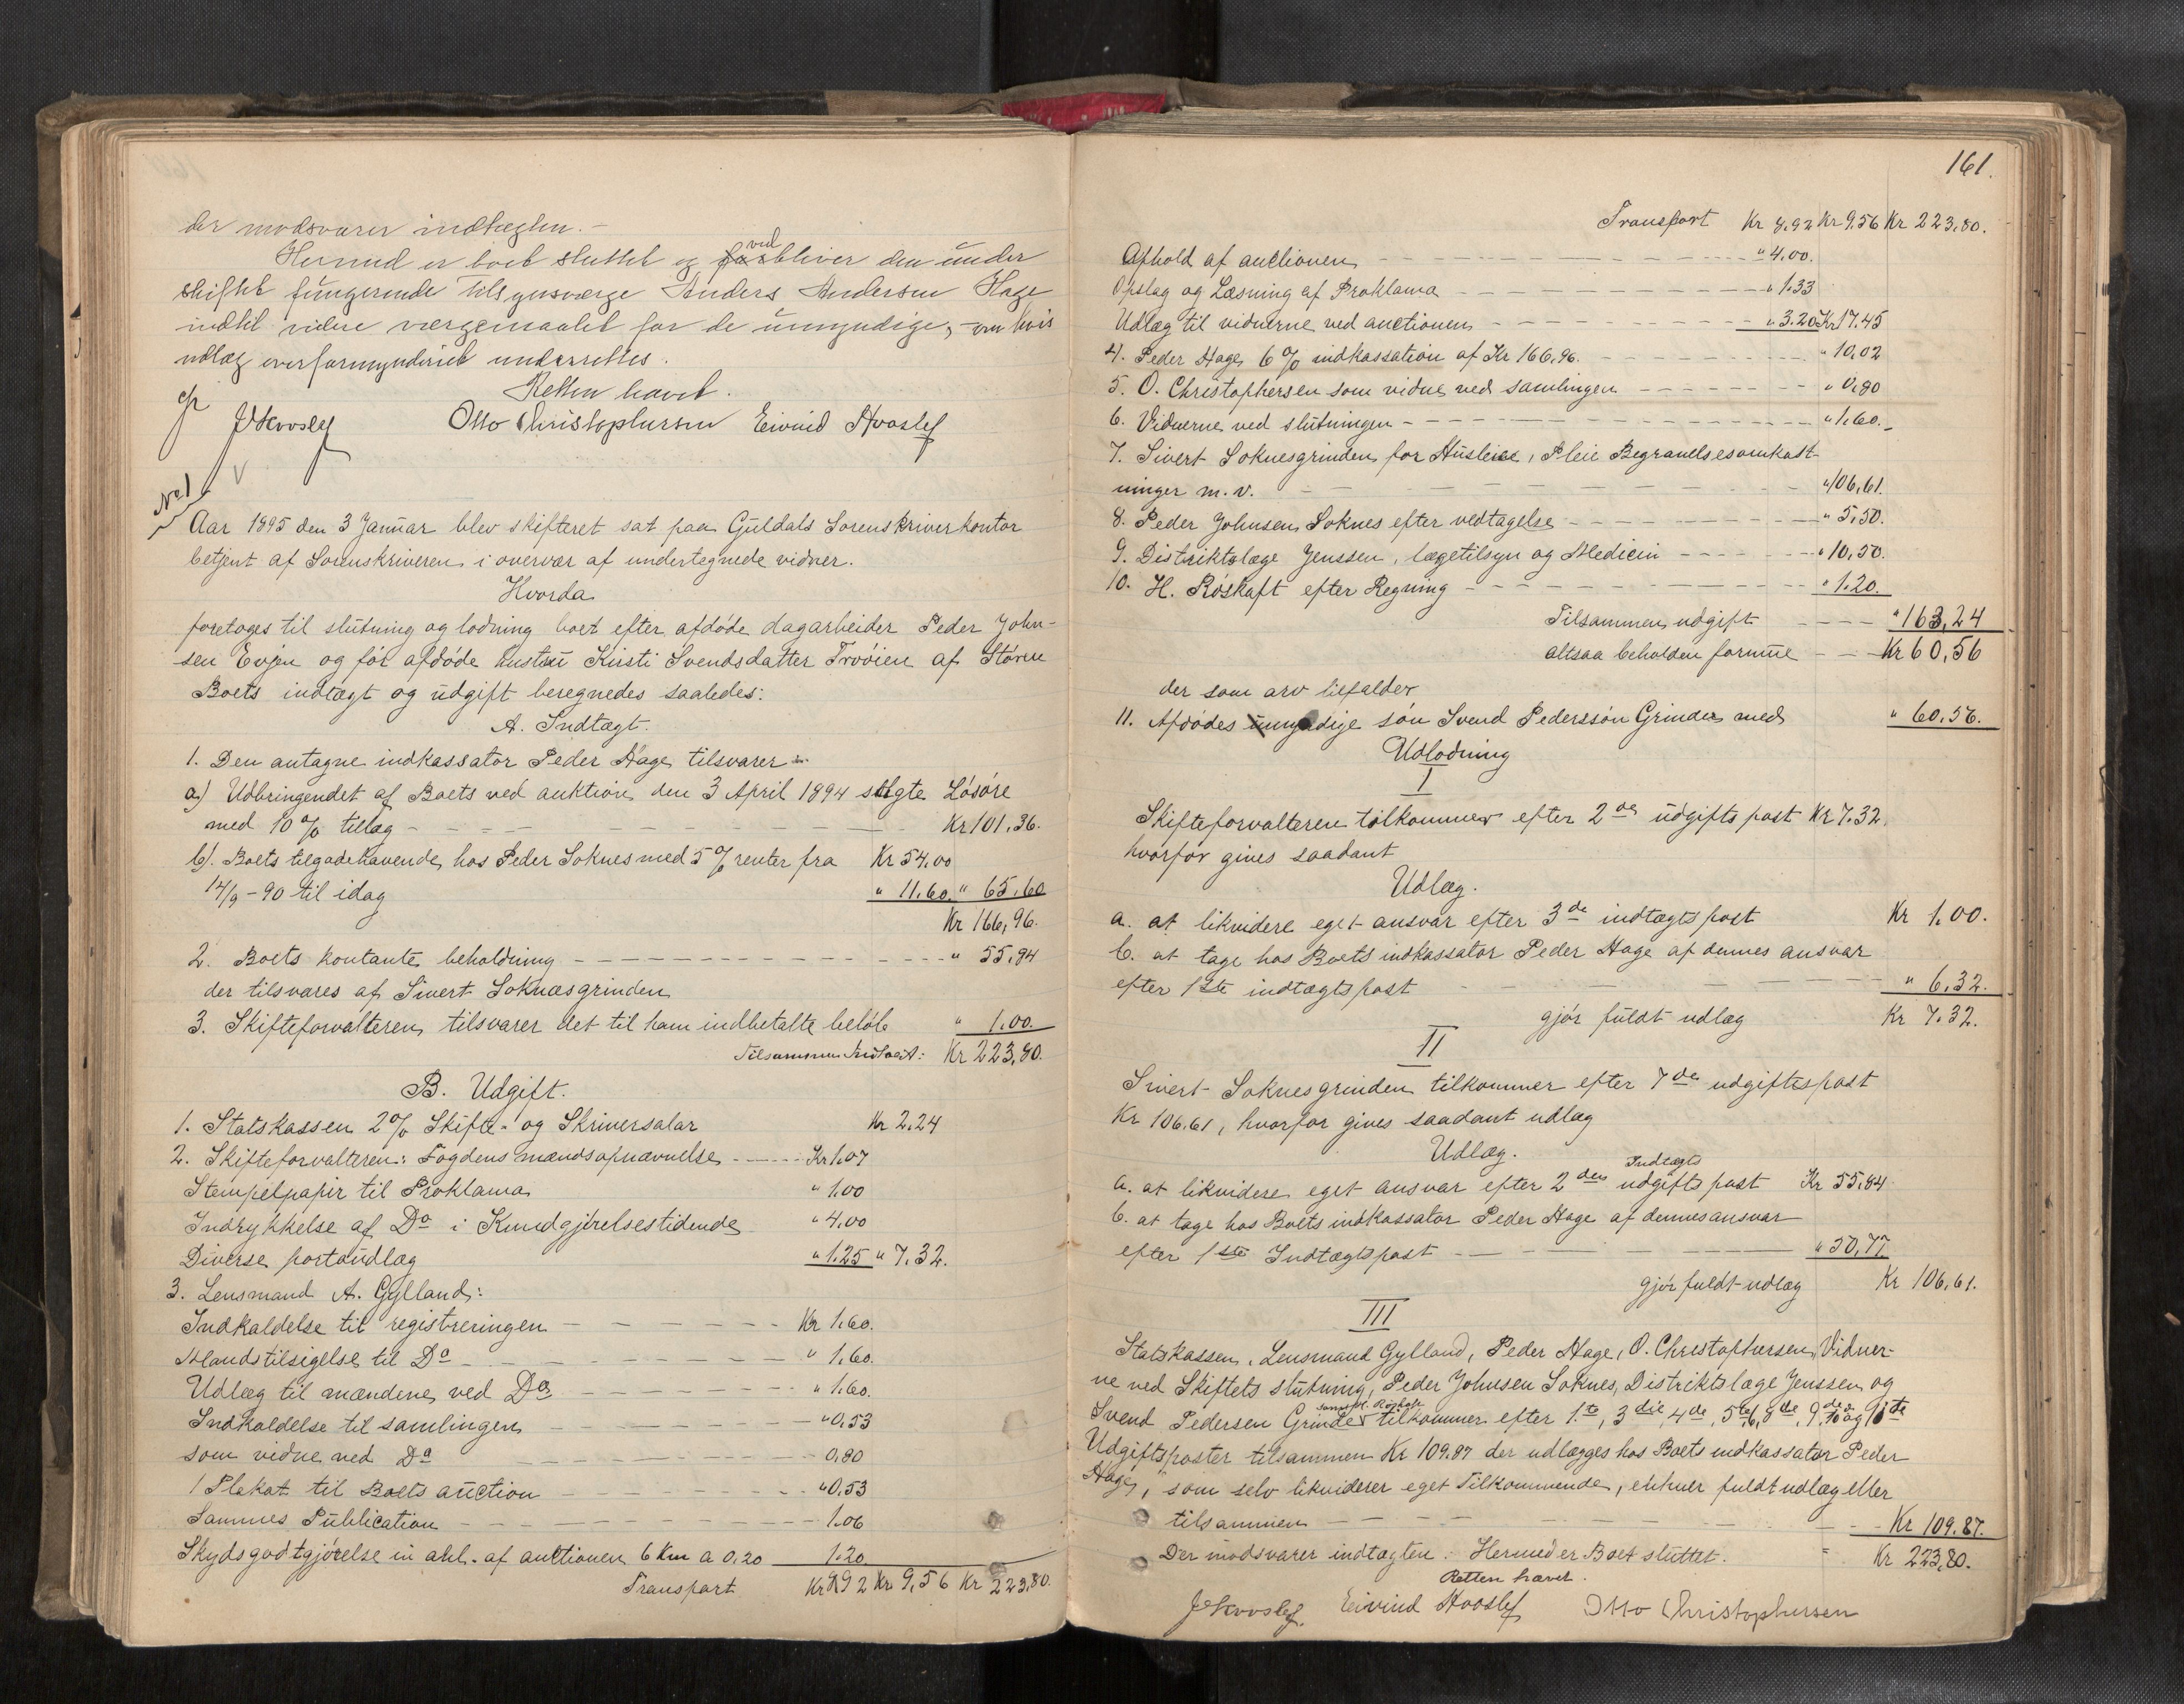 der modsvarer indtægten.-
Hermed er boet sluttet og for ved bliver den under
skiftet fungerende tilsynsværge Anders Andersen Hage
indtil videre værgemaalet for de umyndige, - om hvis
udlæg overformynderiet underrettes.
Retten hævet.
JHvoslef Otto Christophersen Eivind Hvoslef
No 1
Aar 1895 den 3 Januar blev skifteret sat paa Guldals Sorenskriverkontor
betjent af Sorenskriveren i overvær af undertegnede vidner.
Hvorda
foretoges til slutning og lodning boet efter afdøde dagarbeider Peder John-
sen Evjen og før afdøde hustru Kirsti Svendsdatter Trøøien af Støren
Boets indtægt og udgift beregnedes saaledes:
A. Indtægt.
1. Den antagne indkassator Peder Hage tilsvarer:
a) Udbringendet af Boets ved auktion den 3 April 1894 solgte Løsøre
med 10% tillæg - - - Kr 101.36.
b). Boets tilgodehavende hos Peder Soknes med 5% renter fra Kr 54.00
14/9 - 90 til idag " 11.60. " 65.60
Kr 166,96.
2. Boets kontante beholdning - - - " 55,84
der tilsvares af Sivert Soknæsgrinden
3. Skifteforvalteren tilsvarer det til ham indbetalte beløb " 1.00.
Tilsammen Indtægt: Kr 223,80.
B. Udgift.
1. Statskassen 2% Skifte- og Skriversalær Kr 2,24
2. Skifteforvalteren: Fogdens mændsopnævnelse - - - Kr 1.07
Stempelpapir til Proklama " 1.00
Indrykkelse af Do i Kundgjørelsestidende " 4,00
Diverse portoudlæg " 1.25 " 7.32.
3. Lensmand A. Gylland:
Indkaldelse til registreringen - - - Kr 1.60.
Mandstilsigelse til Do - - - " 1,60.
Udlæg til mændene ved Do - - - " 1.60.
Indkaldelse til samlingen - - - " 0,53
som vidne ved Do - - - 0,80
1 Plakat til Boets auction - - - " 0,53
Sammes Publication - - - 1.06
Skydsgodtgjørelse in anl. af auctionen 6 Km a 0,20 1.20
Transport Kr 8.92 Kr 9,56 Kr 223,80.
161.
Transport Kr 8,92 Kr 9,56 Kr 223,80.
Afhold af auctionen - - - " 4,00.
Opslag og Læsning af Proklama - - - " 1.33
Udlæg til vidnerne ved auctionen - - - " 3.20 Kr 17.45
4. Peder Hage 6% indkassation af Kr 166,96. - - - " 10,02
5. O. Christophersen som vidne ved samlingen - - - " 0,80
6. Vidnerne ved slutningen - - - " 1,60.
7. Sivert Soknesgrinden for Husleie, Pleie Begravelsesomkost-
ninger m.v. - - - " 106,61.
8. Peder Johnsen Soknes efter vedtagelse - - - " 5,50.
9. Distriktslæge Jenssen, lægetilsyn og Medicin - - - " 10,50.
10. H. Røskaft efter Regning - - - " 1.20.
Tilsammen udgift - - - " 163,24
altsaa beholden formue - - Kr 60,56
der som arv tilfalder
11. Afdødes umyndige søn Svend Pederssøn Grinden med " 60.56.
Udlodning
I
Skifteforvalteren tilkommer efter 2de udgiftspost Kr 7.32.
hvorfor gives saadant
Udlæg.
a. at likvidere eget ansvar efter 3de indtægtspost Kr 1.00.
b. at tage hos Boets indkassator Peder Hage af dennes ansvar
efter 1ste indtægtspost - - - " 6,32.
gjør fuldt udlæg Kr 7.32.
II
Sivert Soknesgrinden tilkommer efter 7de udgiftspost
Kr 106.61, hvorfor gives saadant udlæg
Udlæg.
Indtægts
a. at likvidere eget ansvar efter 2den udgiftspost Kr 55,84
b. at tage hos Boets indkassator Peder Hage af dennes ansvar
efter 1ste Indtægtspost - - - " 50,77
gjør fuldt udlæg Kr 106,61.
III
Statskassen, Lensmand Gylland, Peder Hage, O. Christophersen, Vidner-
ne ved Skiftets slutning, Peder Johnsen Soknes, Distriktslæge Jenssen og
samt H. Røskaft
Svend Pedersen Grinden tilkommer efter 1.te, 3die, 4de, 5te, 6, 8de, 9de, 10 og 11te
Udgiftsposter tilsammen Kr 109.87 der udlægges hos Boets indkassator Peder
Hage, som selv likviderer eget Tilkommende, enhver fuldt udlæg eller
tilsammen - - - Kr 109.87.
Der modsvarer indtægten. Hermed er Boet sluttet. Kr 223,80.
Retten hævet.
JHvoslef Eivind Hvoslef Otto Christophersen